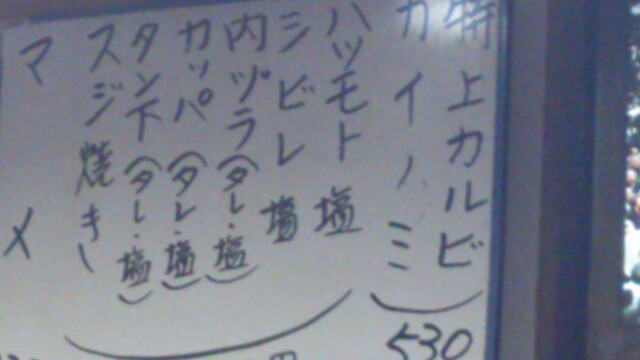 特上カルビ
カイノミ
530
ハツモト 塩
シビレ 塩
内ヅラ(タレ・塩)
カッパ(タレ・塩)
タン下(タレ・塩)
スジ焼き
マメ